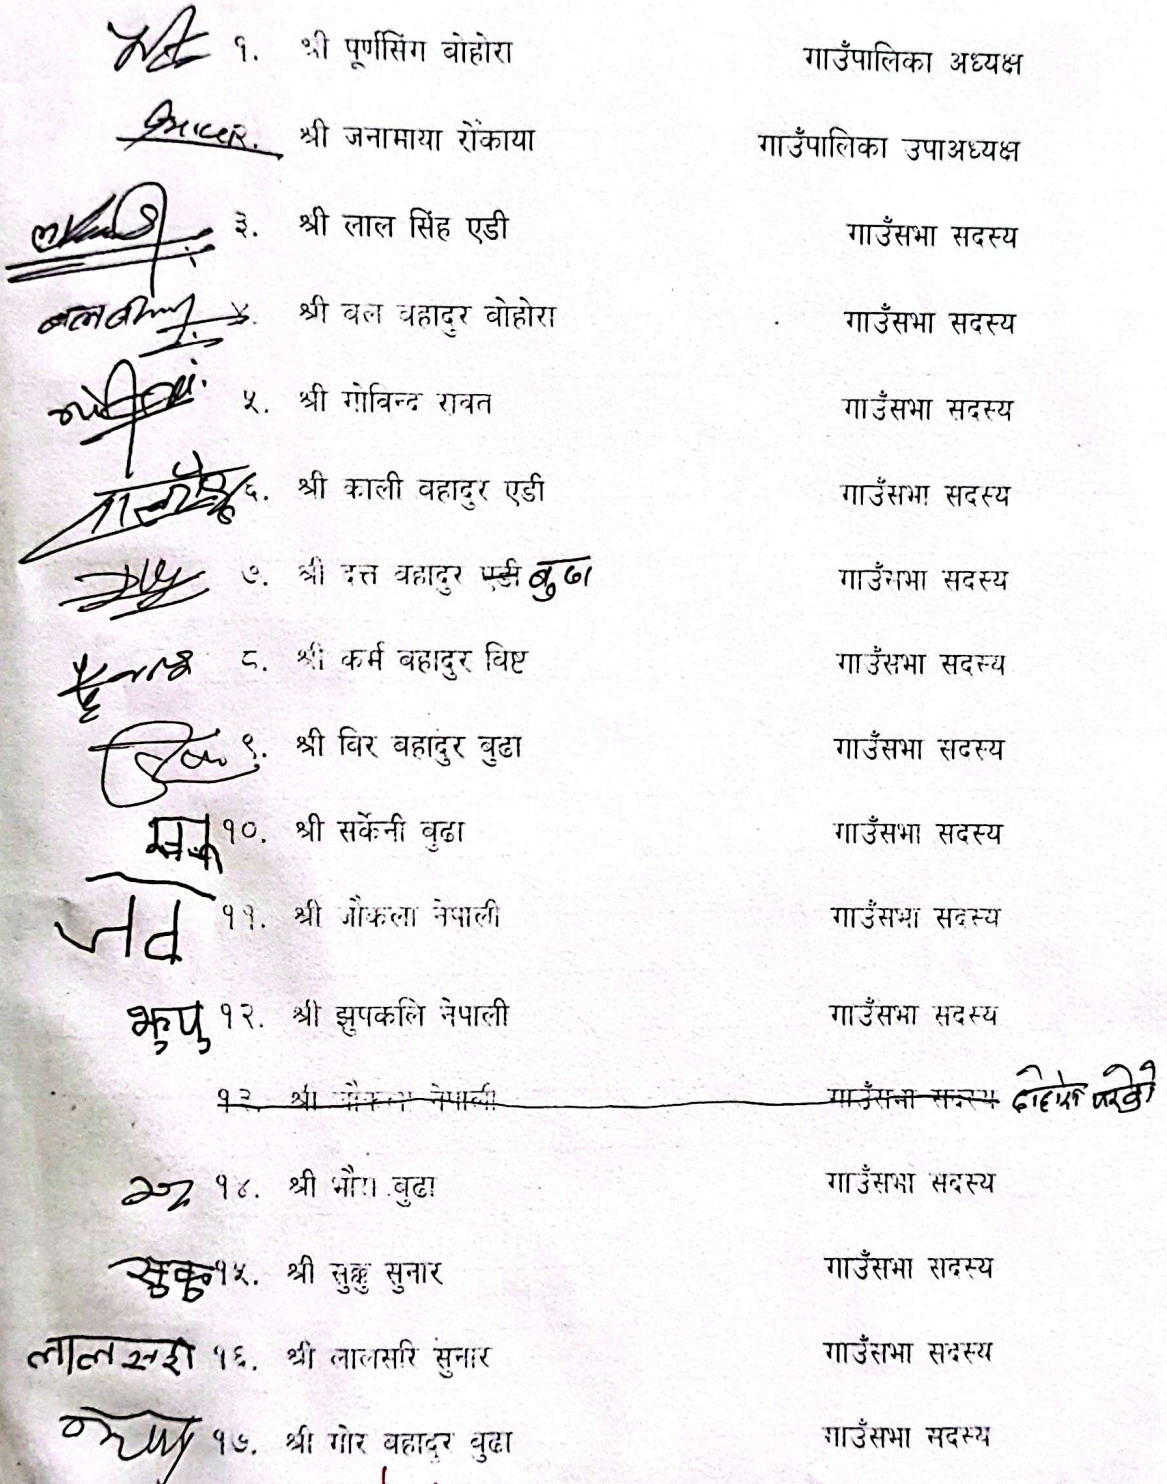 १. श्री पूर्णसिंग बोहोरा गाउँपालिका अध्यक्ष
श्री जनामाया रोकाया गाउँपालिका उपाअध्यक्ष
३. श्री लाल सिंह एडी गाउँसभा सदस्य
४. श्री वल वहादुर वोहोरा गाउँसभा सदस्य
५. श्री गोविन्द रावत गाउँसभा सदस्य
६. श्री काली वहादुर एडी गाउँसभा सदस्य
७. श्री दत्त वहादुर एडी बुढा गाउँसभा सदस्य
८. श्री कर्म बहादुर विष्ट गाउँसभा सदस्य
९. श्री विर बहादुर बुढा गाउँसभा सदस्य
१०. श्री सर्केनी बुढा गाउँसभा सदस्य
११. श्री जौकला नेपाली गाउँसभा सदस्य
झुपु १२. श्री झुपकलि नेपाली गाउँसभा सदस्य
१३. श्री जौकला नेपाली गाउँसभा सदस्य दोहोरो परेको
१४. श्री बुढा गाउँसभा सदस्य
सुकु १५. श्री सुक्कु सुनार गाउँसभा सदस्य
लालसरी १६. श्री लालसरि सुनार गाउँसभा सदस्य
१७. श्री गोर बहादुर वुढा गाउँसभा सदस्य